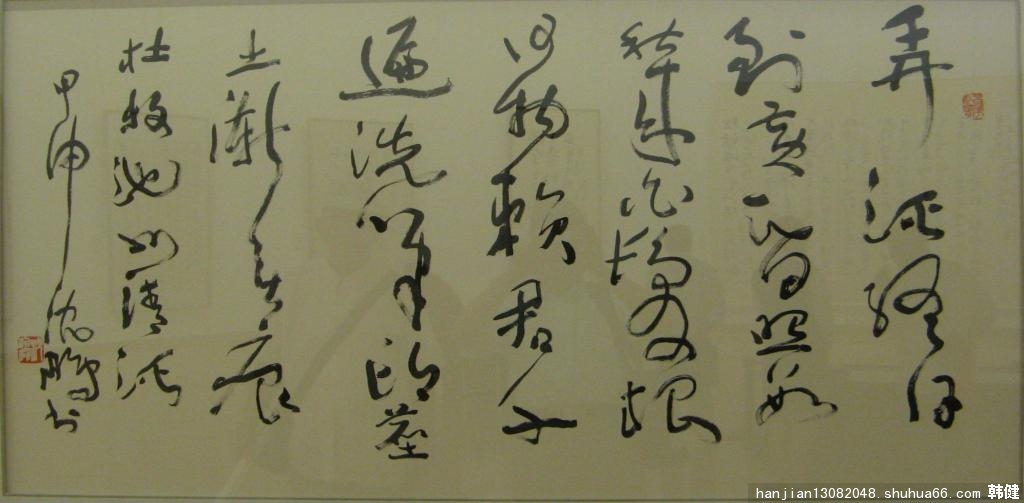 弄溪終日
到黄昏照數
秋来白髮根
何物賴君千
遍洗筆頭塵
土漸無痕
杜牧池州清溪
甲申沈鵬书
hanjian13082048.shuhua66.com 韩健